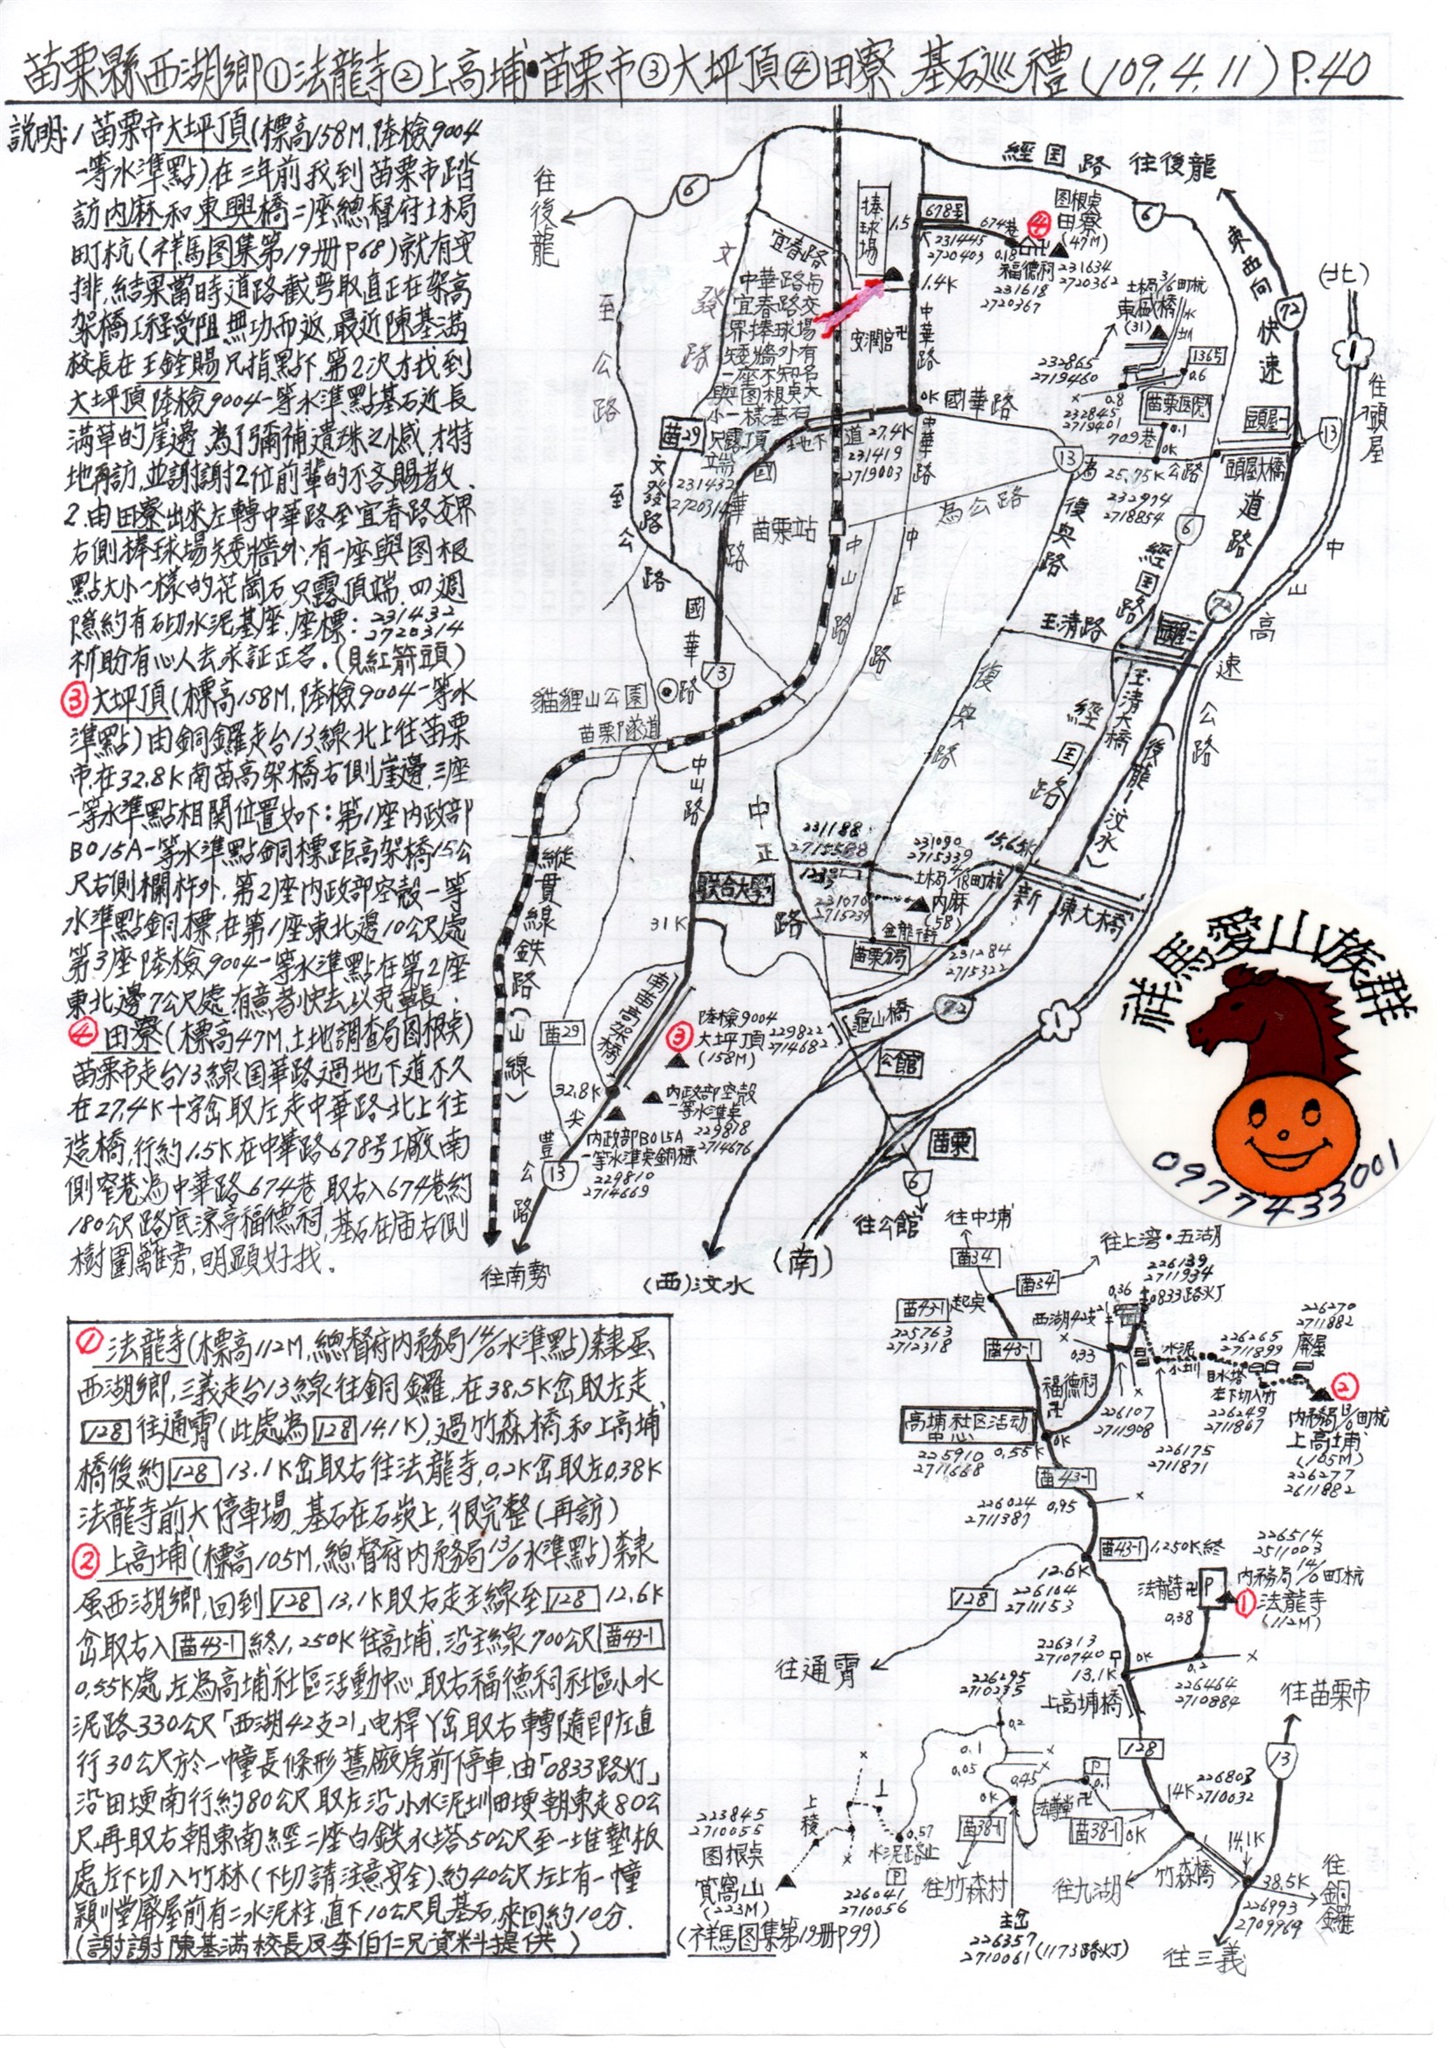 苗栗縣西湖鄉①法龍寺②上高埔•苗栗市③大坪頂④田寮 基石巡禮(109.4.11) P.40
說明:1 苗栗市大坪頂(標高158M,陸檢9004
一等水準點)在三年前我到苗栗市踏
訪內麻和東興橋二座總督府土木局
町杭(祥馬图集第19冊P68)就有安
排,結果當時道路截彎取直正在架高
架橋工程受阻無功而返,最近陳基滿
校長在王銓賜兄指點下,第2次才找到
大坪頂陸檢9004一等水準點基石近長
滿草的崖邊,為了彌補遺珠之憾,才特
地再訪,並謝謝2位前輩的不吝賜教.
2.由田寮出來左轉中華路至宜春路交界
右側棒球場矮牆外,有一座與图根
點大小一樣的花崗石只露頂端,四週
隱約有石切水泥基座,座標:231432
2720314
祈盼有心人去求証正名.(見紅箭頭)
③大坪頂(標高158M,陸檢9004一等水
準點)由銅鑼走台13線北上往苗栗
市,在32.8K南苗高架橋右側崖邊,三座
一等水準點相関位置如下:第1座內政部
B015A一等水準點銅標距高架橋15公
尺右側欄杆外,第2座內政部空殼一等
水準點銅標,在第1座東北邊10公尺處
第3座陸檢9004一等水準點在第2座
東北邊7公尺處,有意者快去以免草長.
④田寮(標高47M,土地調查局图根点)
苗栗市走台13線国華路过地下道不久
在27.4K十字岔取左走中華路北上往
造橋,行約1.5K在中華路678号工廠南
側窄巷為中華路674巷,取右入674巷約
180公尺路底涼亭福德祠,基石在庙右側
樹圍籬旁,明顯好找.
①法龍寺(標高112M,總督府內務局14/0水準點)隸屬
西湖鄉,三義走台13線往銅鑼,在38.5K岔取左走
128往通霄(此處為128 14.1K),過竹森橋和上高埔
橋後約128 13.1K岔取右往法龍寺,0.2K岔取左0.38K
法龍寺前大停車場,基石在石崁上,很完整(再訪)
②上高埔(標高105M,總督府內務局13/0水準點)隸
屬西湖鄉,回到128 13.1K取右走主線至128 12.6K
岔取右入苗43-1終1.250K往高埔,沿主線700公尺苗43-1
0.55K處,左為高埔社區活動中心,取右福德祠社區小水
泥路330公尺「西湖42支21」电桿丫岔取右轉隨即左直
行30公尺於一幢長條形舊廠房前停車,由「0833路灯」
沿田埂南行約80公尺取左沿小水泥圳田埂朝東走80公
尺再取右朝東南經二座白鉄水塔50公尺至一堆墊板
處左下切入竹林(下切請注意安全)約40公尺左上有一幢
潁川堂廢屋前有二水泥柱,直下10公尺見基石,來回約10分.
(謝謝陳基滿校長及李伯仁兄資料提供)
往後龍
6
經国路 往後龍
6
東西向快速道路
72
(北)
1
往頭屋
中山高速公路
至公路
文發路
宜春路
中華路与
宜春路交
界棒球場
矮牆外有
一座不知名
與图根点大
小一樣基石
只露頂端
231432
2720314
棒球場
1.5
678号
674巷
231445
2720403
0.18
福德祠
231618
2720367
④
图根点
田寮
(47M)
231634
2720362
1.4K
安瀾宮卍
中華路
0K 國華路
地下道
27.4K
231419
2719003
苗29
土木局3/6町杭
東盛橋
(31)
232865
2719460
1365
0.6
0.8
232845
2719401
苗栗医院
709巷
0.1
0K
13
25.75K
232974
2718854
頭屋一
頭屋大橋
為公路
苗栗站
中山路
中正路
復興路
經国路
玉清路
頭屋二
玉清大橋
(後龍-汶水)
貓貍山公園
苗栗隧道
國華路
13
中山路
縱貫線鉄路(山線)
联合大學
31K
231188
2715588
123号
231090
2715339
土木局4/18町杭
內麻
(58)
231070
2715239
15.65K
新東大橋
金龍街
苗栗分局
231284
2715322
南苗高架橋
苗29
32.8K
尖豐公路
13
③
陸檢9004
大坪頂
(158M)
229822
2714682
內政部空殼
一等水準点
229818
2714676
內政部B015A
一等水準点銅標
229810
2714669
龜山橋
公館
苗栗
6
往公館
往南勢
(西)汶水
(南)
祥馬愛山族群
0977433001
往中埔
苗34
苗34
往上湾•五湖
苗43-1 起点
225763
2712318
苗43-1
西湖42支21
0.36
226139
2711934
0833路灯
0.33
水泥小圳
226265
2711899
白水塔
226270
2711882
廢屋
左下切入竹
226249
2711867
②
內務局13/0町杭
上高埔
(105M)
226277
2611882
福德祠卍
226107
2711908
226175
2711871
高埔社區活动中心
225910
2711668
0.55K
0K
苗43-1
226024
2711387
0.95
苗43-1 1.250K終
12.6K
226104
2711153
128
往通霄
法龍寺卍
P
0.38
226514
2511003
內務局14/0町杭
①法龍寺
(112M)
226313
2710740
13.1K
0K
0.2
226464
2710884
上高埔橋
往苗栗市
13
128
226295
2710235
0.2
0.1
0.05
0.45
0K
苗38-1
P
0.1
苗38-1
0K
14K
226803
2710032
14.1K
38.5K
226993
2709969
往銅鑼
往三義
竹森橋
往九湖
往竹森村
主岔
226357
2710061
(1173路灯)
上稜
水泥路止
0.57
P
226041
2710056
223845
2710055
图根点
筧窩山
(223M)
(祥馬图集第19冊P99)